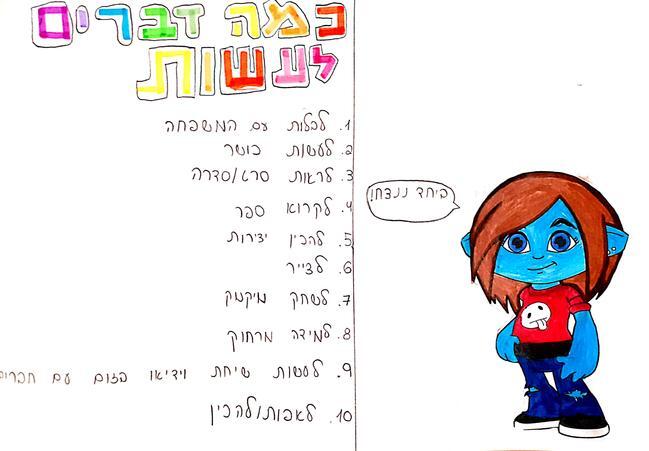 כמה דברים
לעשות
1. לבלות עם המשפחה
2. לעשות כושר
3. לראות סרט/סדרה
4. לקרוא ספר
5. להכין יצירות
6. לצייר
7. לשחק מיקמק
8. למידה מרחוק
9. לעשות שיחת וידיאו בזום עם חברים
10. לאפות/להכין
ביחד ננצח!